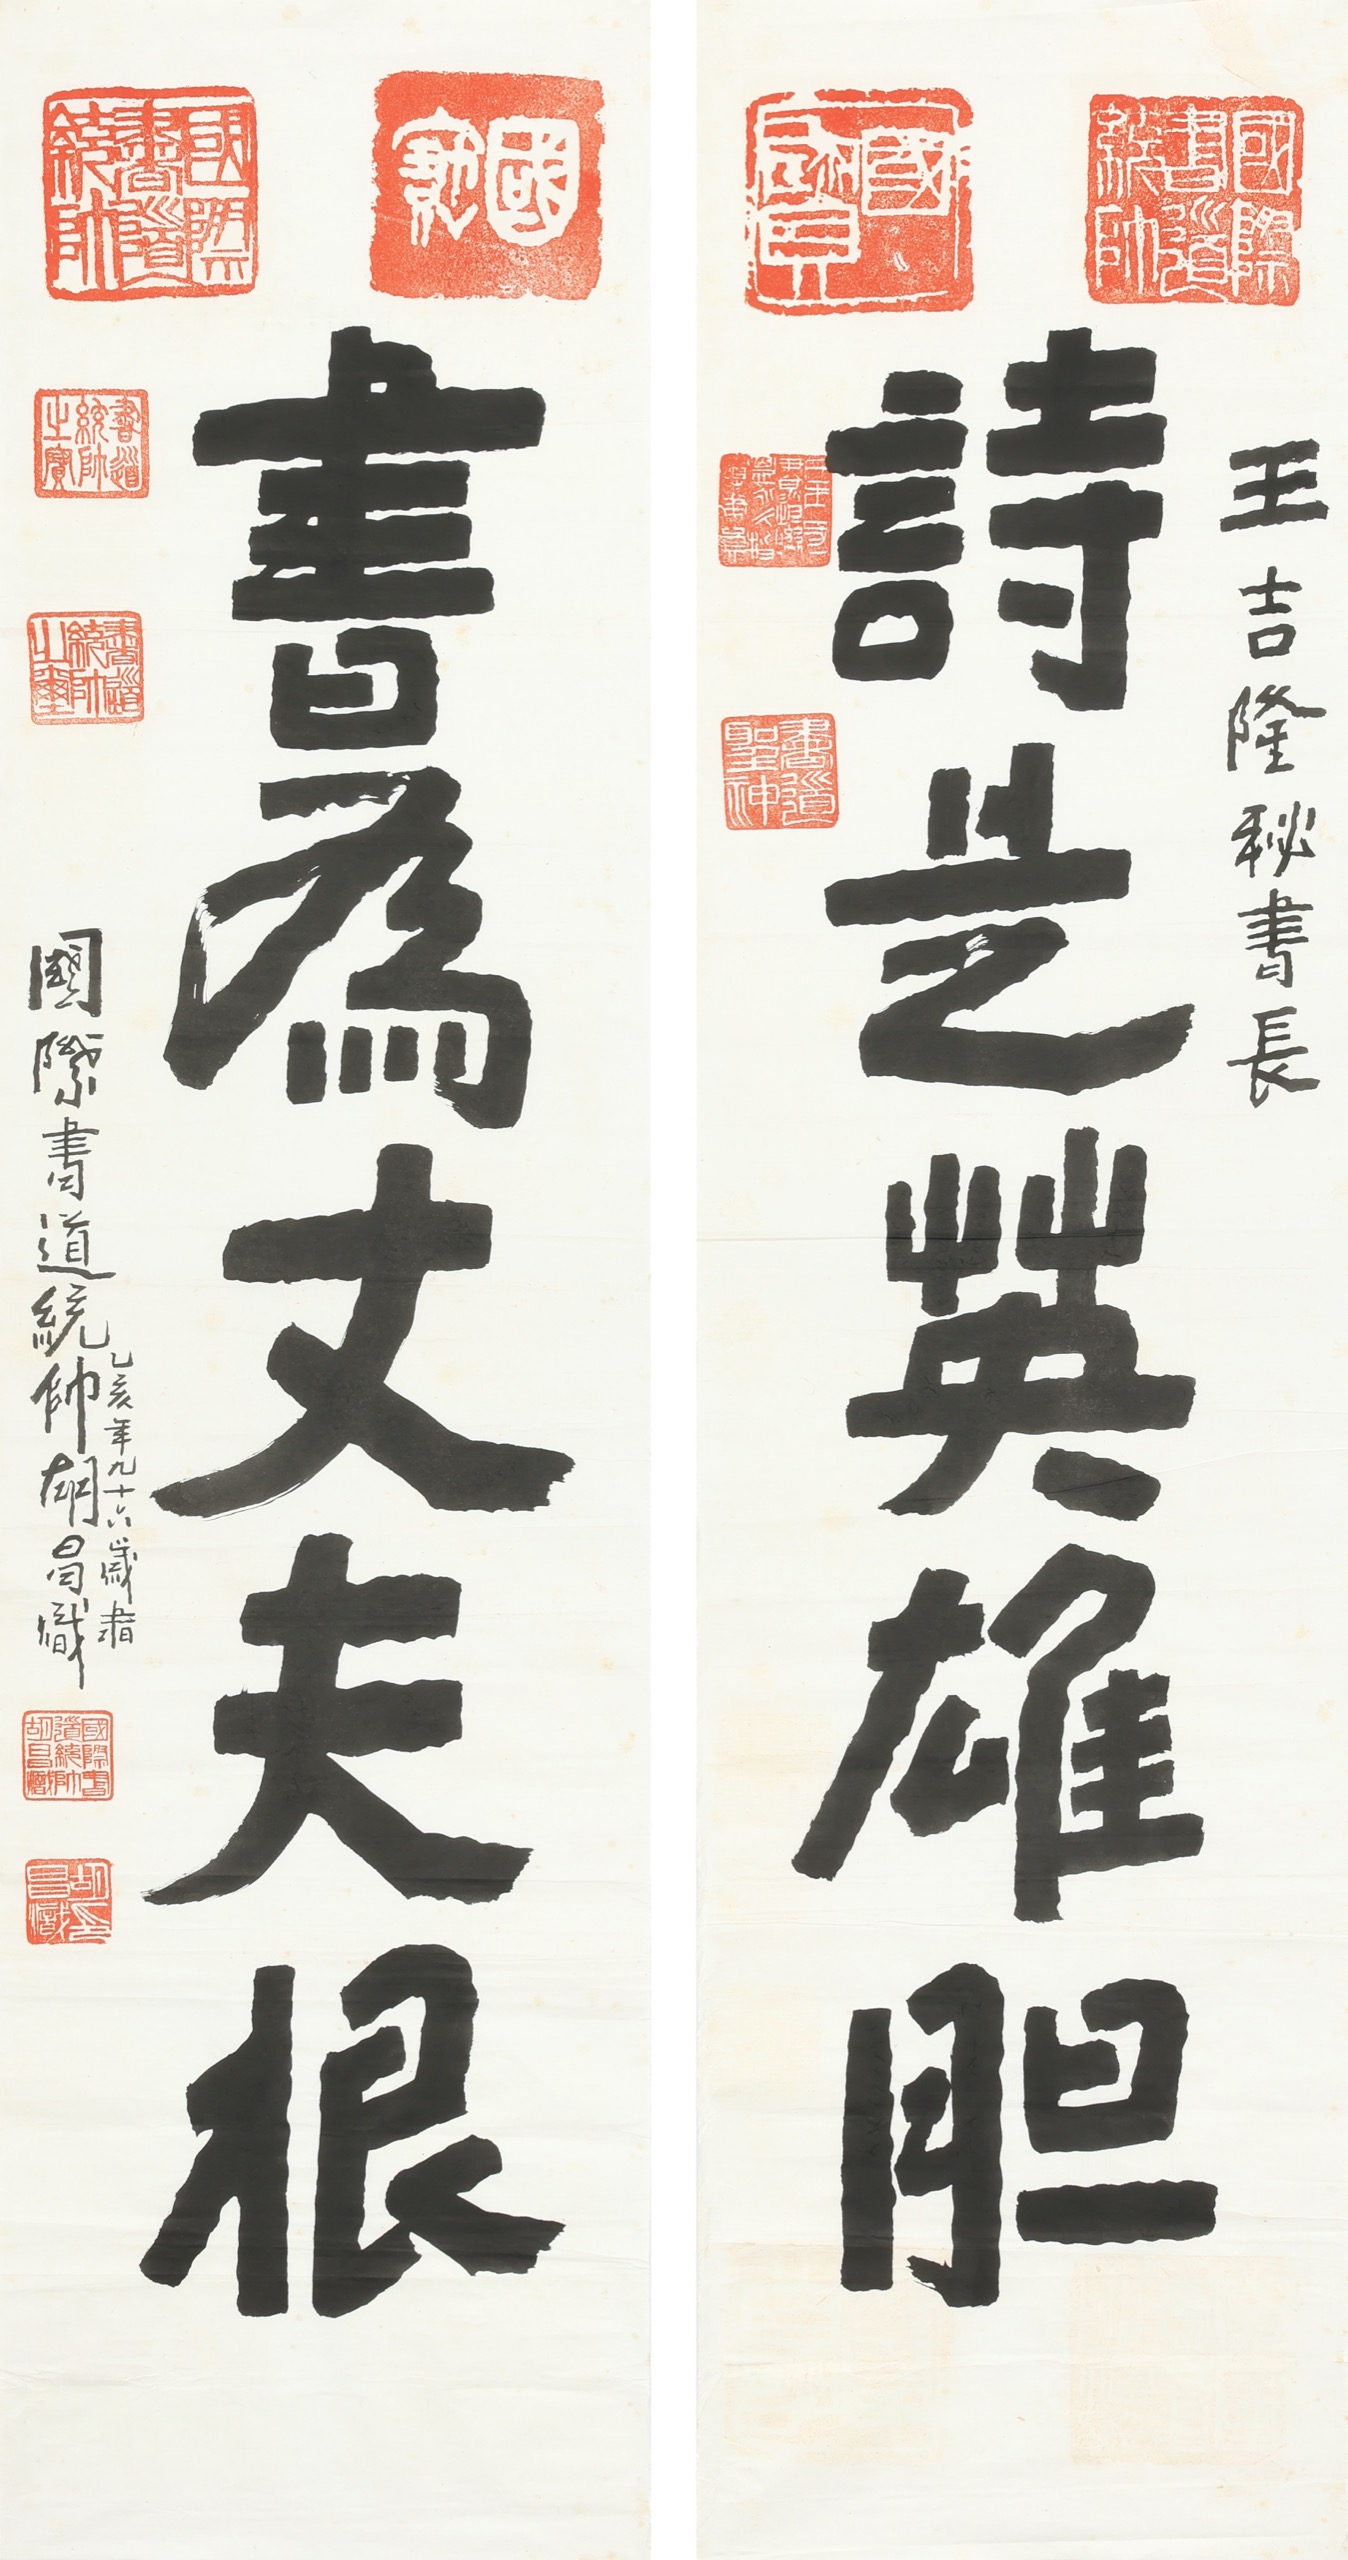 王吉隆秘書長
詩是英雄胆
書為丈夫根
乙亥年九十六歲書
國際書道統帥胡昌熾
國際書道統帥
國
書道聖神
國
國際書道統帥
書道統帥之寶
書道統帥之璽
國際書道統帥胡昌熾
胡昌熾